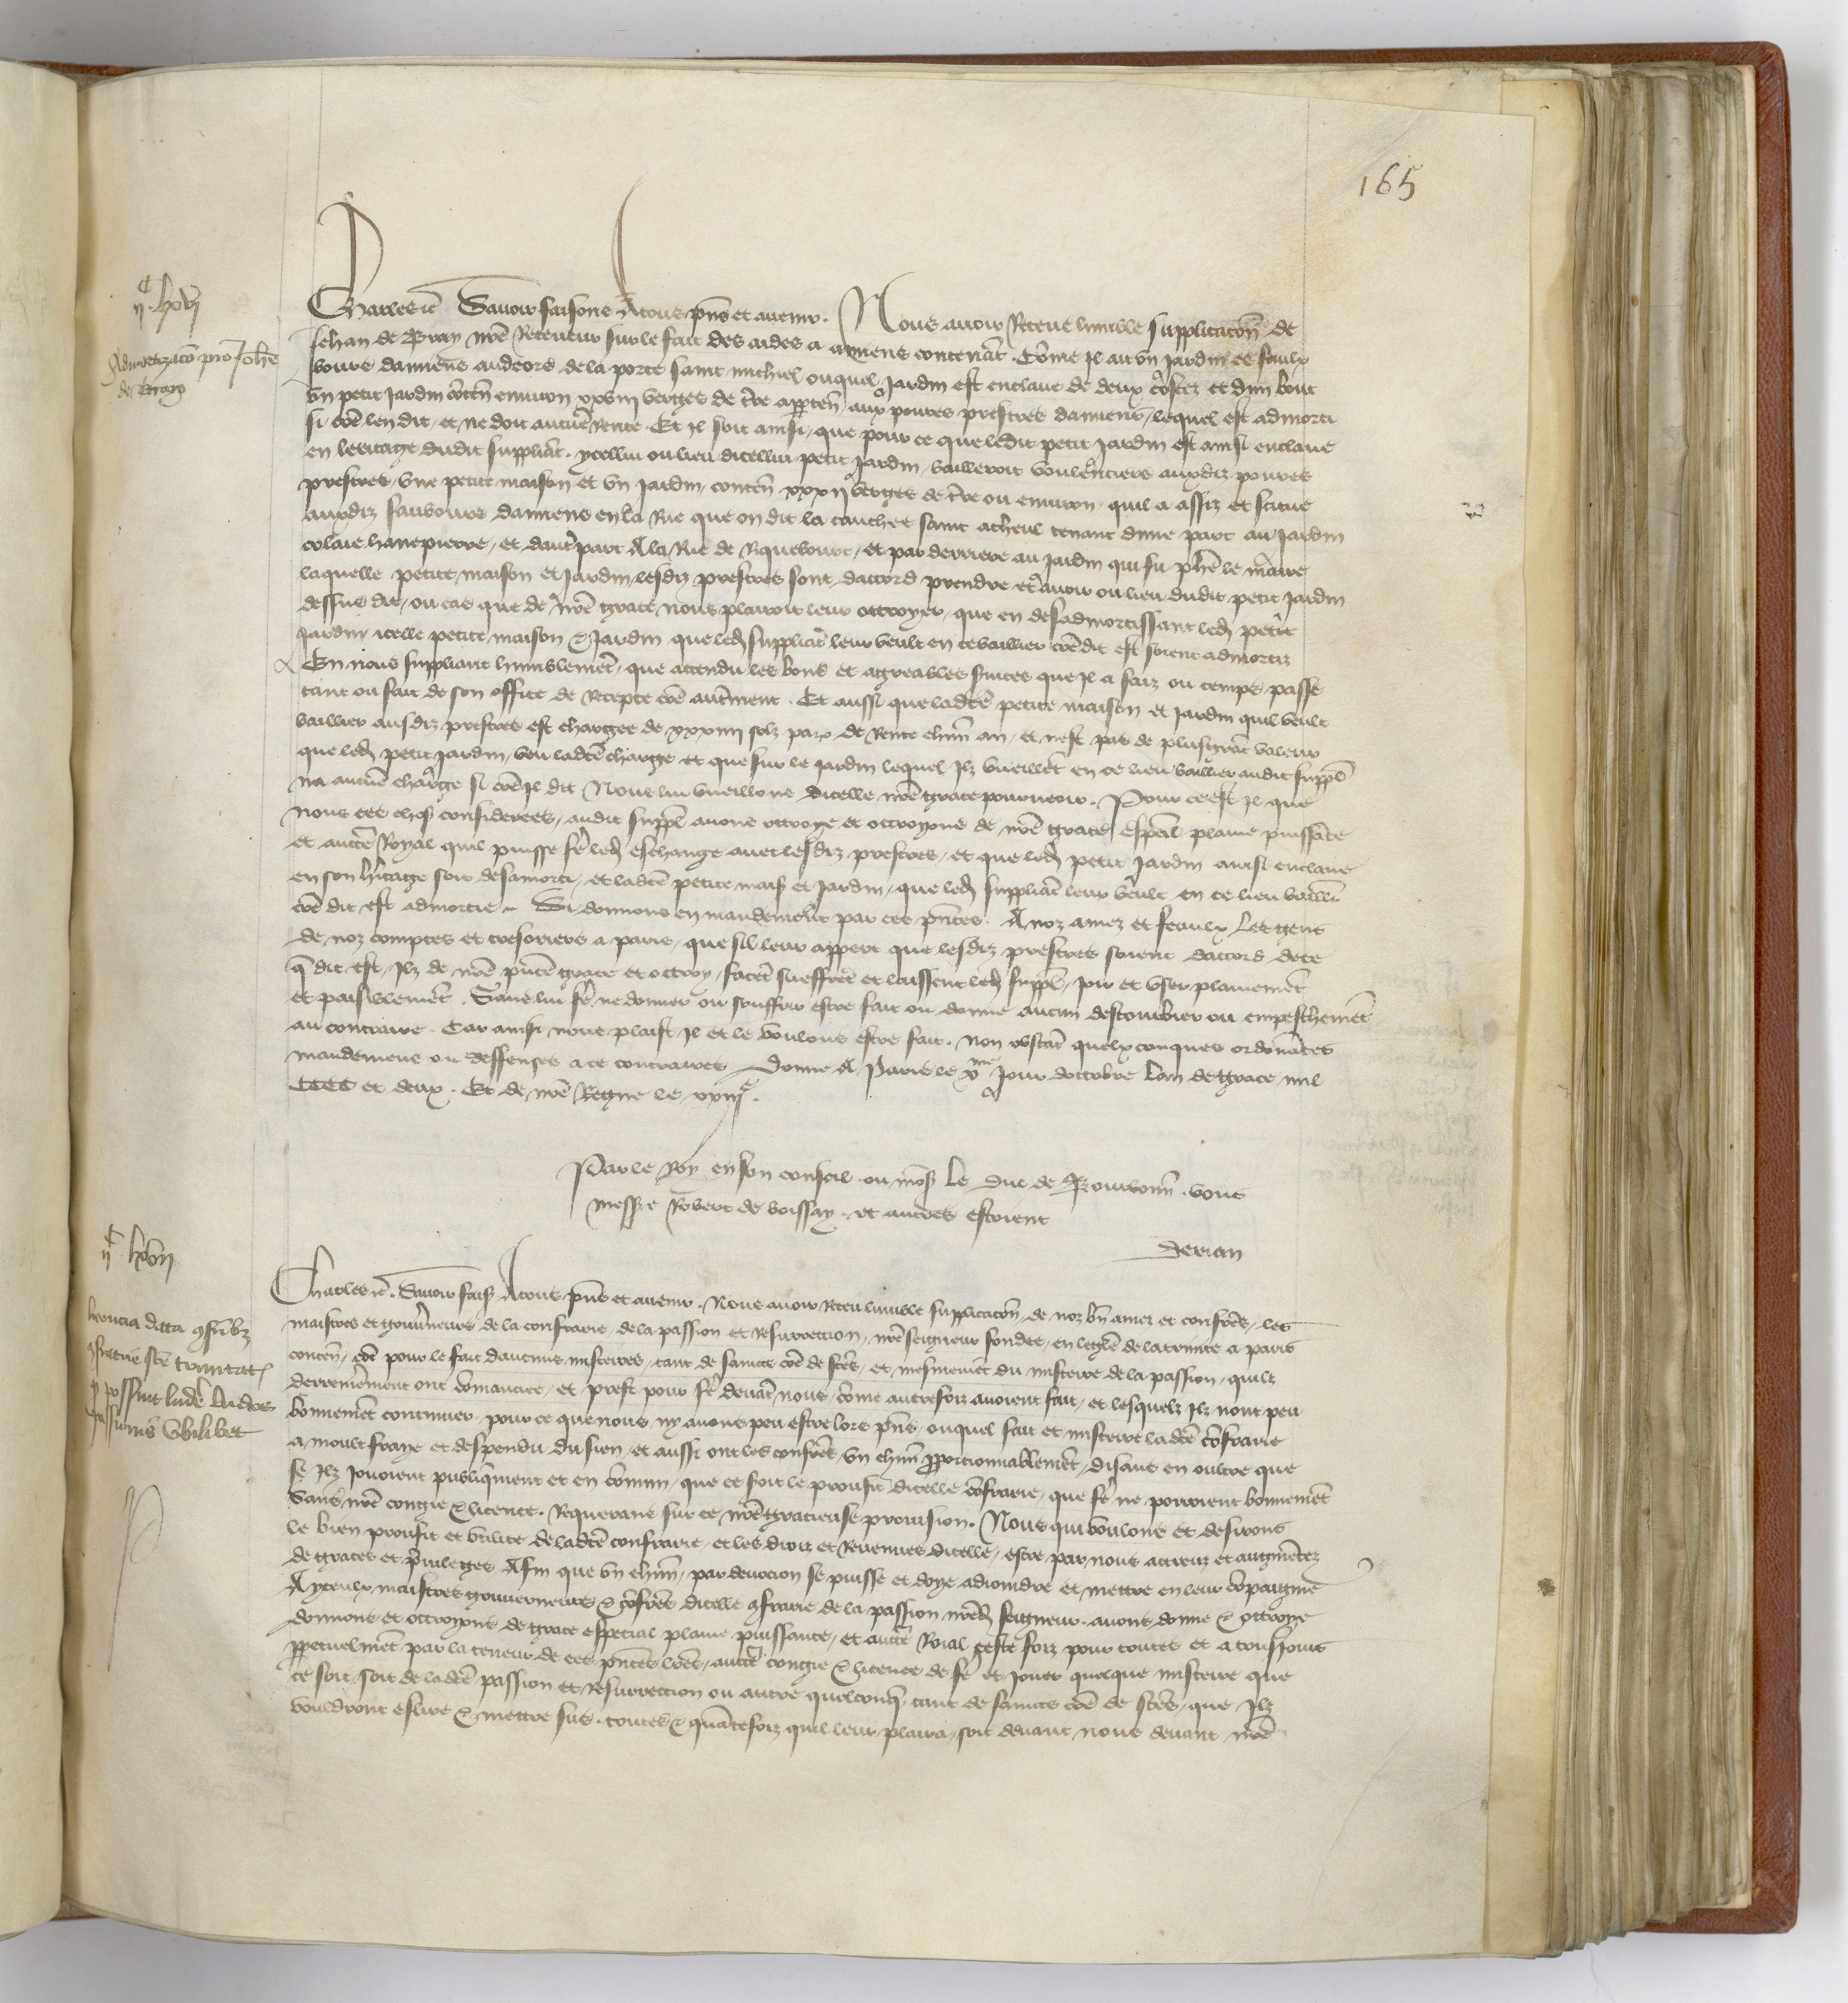 165
IIc LXVI
Admortizacõ pro Johẽ
de Bray
Charles etc̃ Savoir faisons A tous pñs et avenir. Nous avoir Receue humble supplicaciõn de
Jehan de Bray nrẽ Receveur sur le fait des aides a amiens contenãt. Cõme Il ait vn Jardin es faulx
bours damiens au dehors de la porte saint michiel ouquel Jardin est enclave de deux costez et dun bout
vn petit Jardin cõtẽn environ xxviii verges de trẽ apparten̄ aux povres prestres damiens, lequel est admorti
si cõe len dit, et ne doit aucuñe Rente Et Il soit ainsi, que pour ce que ledit petit Jardin est ainsi enclave
en leritage dudit suppliãt. ycellui ou lieu dicellui petit Jardin bailleroit voulẽntiers auxdiz povres
prestres, vne petite maison et vn Jardin, contẽn xxxii verges de trẽ ou environ, quil a assiz et scitue
auxdiz fauxbours damiens en la Rue que on dit la cauchee saint acheul tenant dune part au Jardin
colaie hanepierre, et dautrẽ part A la Rue de Riquebourc, et par derriere au Jardin qui fu phẽ le maire
laquelle petite maison et Jardin, lesdiz prestres sont daccord prendre et avoir ou lieu dudit petit Jardin
dessus dit, ou cas que de nrẽ grace nous plairoit leur ottroyer, que en desadmortissant led̃ petit
Jardin icelle petite maison & Jardin que led̃ suppliãt leur veult en ce baillier cõe dit est soient admortiz
En nous suppliant humblemẽt, que attendu les bons et agreables svices que Il a faiz ou temps passe
tant ou fait de son office de Recepte cõe autrẽment. Et aussi que ladcẽ petite maison et Jardin quil veult
baillier ausdiz prestres est chargee de xxxiiii solz par̃ de Rente chũn an, et nest pas de plus grãt valeur
que led̃ petit Jardin, veu ladcẽ charge et que sur le Jardin lequel Ilz vueillẽt en ce lieu baillier audit suppl̃
na aucuñe charge si cõe Il dit Nous lui vueillons dicelle nrẽ grace pourveoir. Pour ce est Il que
nous ces choses considerees, audit suppl̃ avons ottroye et ottroyons de nrẽ grace especĩal plaine puissãce
et auctẽ Royal quil puisse fẽ led̃ eschange avec lesdiz prestres, et que led̃ petit Jardin ainsi enclave
en son hritage soit desamorti, et ladcẽ petite mais̃ et Jardin, que led̃ suppliãt leur veult en ce lieu baillier
cõe dit est admortie. Si donnons en mandement par ces pñtes. A noz amez et feaulx Les gens
de noz comptes et tresoriers a paris, que sil leur appert que lesdiz prestres soient daccord de ce
q̃ dit est, Ilz de nrẽ pñte grace et ottroy, facẽt sueffrẽt et laissent led̃ suppl̃, Joir et vser plainemẽt
et paisiblemẽt. Sans lui fẽ ne donner ou souffrir estre fait ou donne aucun destourbier ou empeschemẽt
au contraire. Car ainsi nous plaist Il et le voulons estre fait. Non obstãt quelxconques ordonãces
mandemens ou deffenses a ce contraires Donne A Paris le xme Jour doctobre Lan de grace mil
CCCC et deux. Et de nrẽ Regne le xxiiie.
Par le Roy en son conseil ou mõs̃ Le Duc de Bourbonñ. vous
messe Robert de boissay. et autres estoient
Derian
IIc LXVII
licencia data gfrĩbz
gfratrie sce trinitat̃
q possint luderẽ ludos
passionis vbilibet
Charles etc̃. Savoir fais̃ A tous pñs et avenir. Nous avoir Receu humble supplicaciõn de noz bñ amez et confrẽs, les
maistres et gouverneurs de la confrarie, de la passion et Resurreccion, nrẽ seigneur fondee, en leglise de la trinite a paris
contẽn, cõe pour le fait daucuns misteres, tant de saincts cõe de sctẽs, et mesmemẽt du mistere de la passion, quilz
derrenierement ont cõmanciee, et prest pour fẽ devãt nous, cõme autresfoiz avoient fait, et lesquelx Ilz nont peu
bonnemẽt continuer, pour ce que nous ny avons peu estre lors pñs, ouquel fait et mistere ladcẽ cõfrarie
a moult fraye et despendu du sien, et aussi ont les confrẽs, vn chũn proporcionnablemẽt, disans en oultre que
se Ilz Jouoient publiquement et en cõmun, que ce soit le proufit dicelle cõfrarie, que fẽ ne porroient bonnemẽt
Sans nrẽ congie & licence. Requerans sur ce nrẽ gracieuse provision. Nous qui voulons et desirons
le bien proufit et vtilite de ladcẽ confrarie, et les droiz et Revenues dicelle, estre par nous accreuz et augmẽtez
de graces et privileges Afin que vn chũn, par devocion se puisse et doye adioindre et mettre en leur cõpaignie
A yceulx maistres gouverneurs & cõfrẽs dicelle gfrarie de la passion nrẽd̃ seigneur. avons donne & ottroye
donnons et ottroyons de grace especial plaine puissance, et auctẽ Roial ceste foiz pour toutes et a tousjours
ppetuelmẽt par la teneur de ces pñtes lrẽs, auctẽ congie & licence de fẽ et Jouer quelque mistere que
ce soit, soit de ladcẽ passion et Resurreccion ou autre quelconq̃, tant de saincts cõe de sctẽs, que Ilz
vouldront eslire & mettre sus. toutes & quãtesfoiz quil leur plaira, soit devant nous devant nrẽ